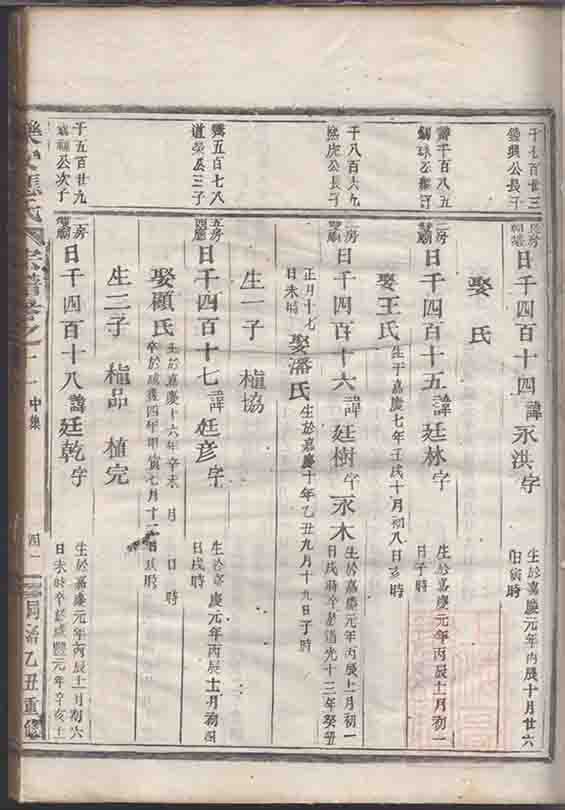 千七百廿三
公長子
日千四百十四 諱永洪字
生於嘉慶元年丙辰十月廿六
日寅時
娶 氏
千百八五
日千四百十五 諱廷林字
生於嘉慶元年丙辰十一月初一
日子時
娶王氏
生于嘉慶七年壬戌十月初八日亥時
千八百六九
公長子
日千四百十六 諱廷樹字永木
生於嘉慶元年丙辰十一月初一
日戌時卒於道光十三年癸丑
正月十七
日未時
娶潘氏
生於嘉慶十年乙丑九月十九日子時
生一子 植協
五百七八
道癸公三子
日千四百十七 諱廷彦字
生於嘉慶元年丙辰十一月初四
日戌時
娶顧氏
生於嘉慶十六年辛未 月 日 時
卒於咸豐四年甲寅七月十二日戌時
生二子 植品 植完
千五百廿九
公次子
日千四百十八 諱廷乾字
生於嘉慶元年丙辰十一月初六
日未時卒於咸豐元年辛亥十
氏宗譜卷之十一
中集
四一
同治乙丑重修